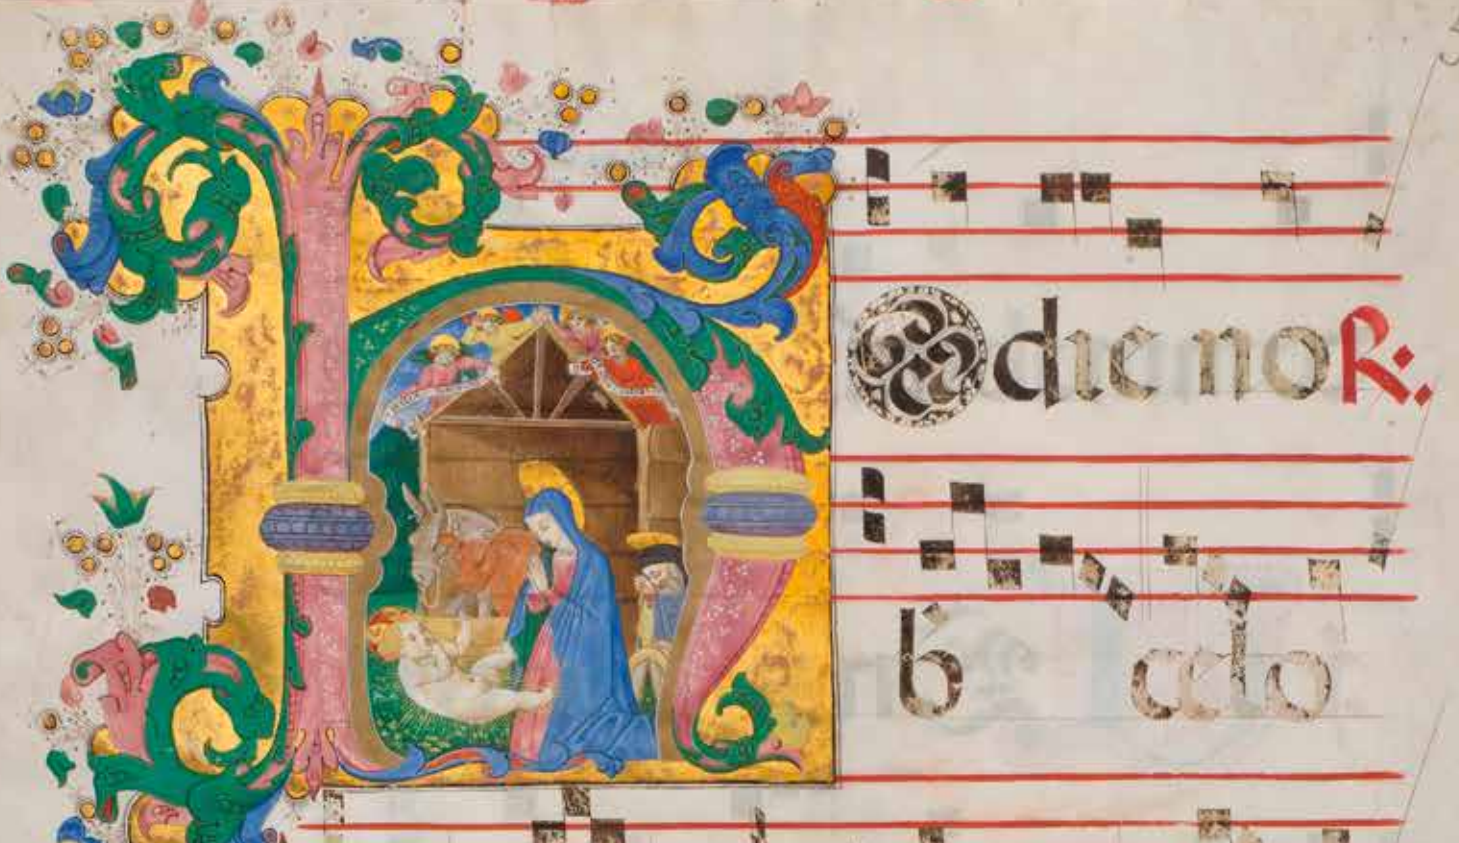 HOdie no R.
b celo